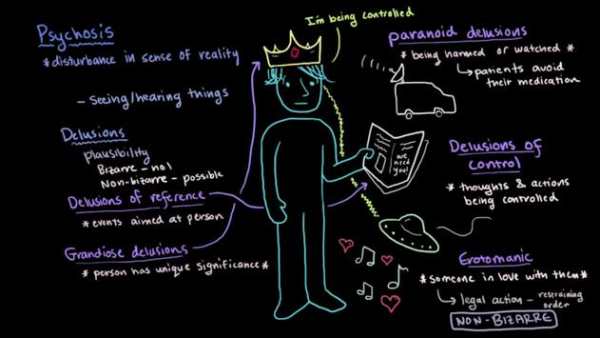 Psychosis
* disturbance in sense of reality
- Seeing/hearing things
Delusions
plausibility
Bizarre - not
Non-bizarre - possible
Delusions of reference
* events aimed at person
Grandiose delusions
* person has unique significance *
I'm being controlled
paranoid delusions
* being harmed or watched *
patients avoid
their medication
we
need
you!
Delusions of
control
* thoughts & actions
being controlled
Erotomanic
* someone in love with them *
legal action - restraining
order
NON-BIZARRE